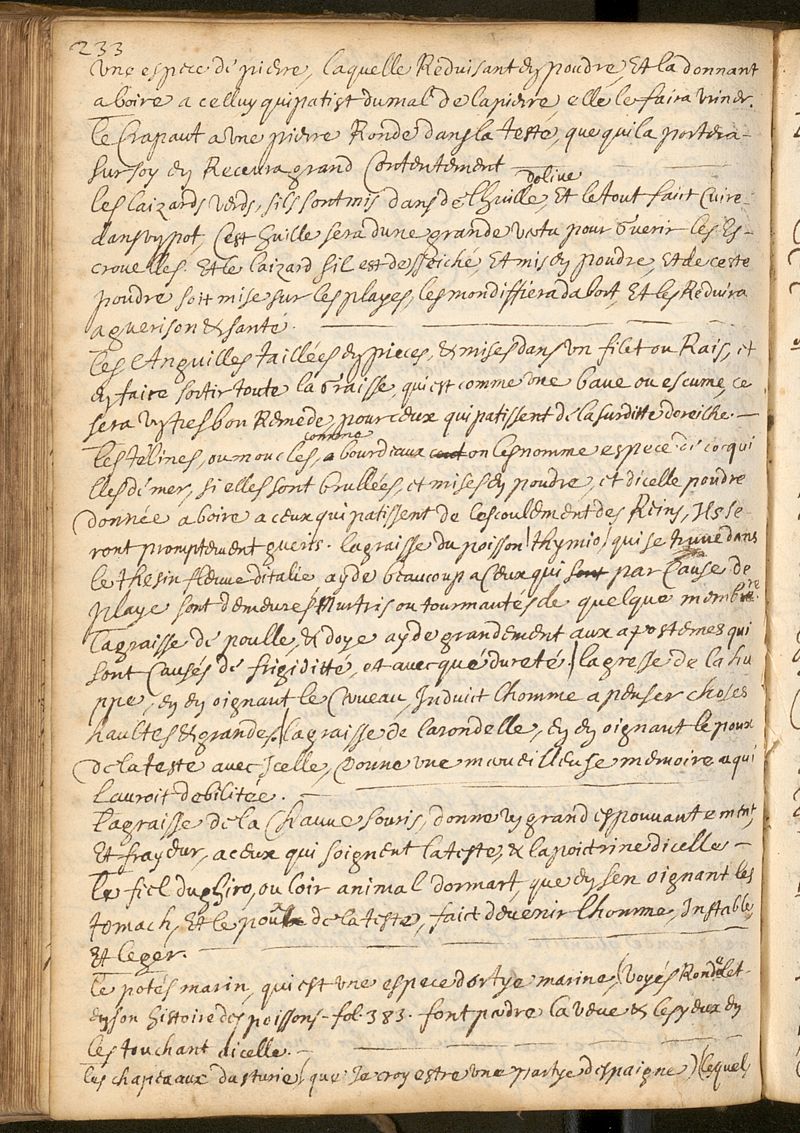 233
Une espece de pierre, laquelle Reduisant en poudre, Et la donnant
a boire a celluy qui patist du mal de la pierre elle le faira uriner.
Le Crapaut a une pierre Ronde dans la teste, que qui la portera
sur soy en Recevra grand Contentement
dolive
les laizards verds, sils sont mis dans de l'huille, Et le tout faict Cuire
dans un pot, C'est huille sera dune grande vertu pour Guerir les Es-
crouelles. Et le laizard sil est desseiché, Et mis en poudre, Et de ceste
poudre soit mise sur les playes, les mondiffiera dabort, Et les Reduira
a guerison & santé.
Les Anguilles taillées en pieces, & mises dans un filet ou Rais, et
en faire sortir toute la Graisse, qui est comme une baue ou escume, ce
sera un tres bon Remede, pour ceux qui patissent de la surditte doreilhe.
comme
Les telines, ou moucles, a bourdeaux on les nomme espece de coqui
lles de mer, si elles sont brullées, et mises en poudre, et dicelle poudre
donnée a boire a ceux qui patissent de lescoulement des Reins, Ils se
ront promptement gueris. la graisse du poisson (thymio) qui se truve dans
le thesin fleuve ditalie ayde beaucoup a Ceux qui sont par Cause de
playe sont demeures Murtris ou tourmantés de quelque membre.
La graisse de poulle, & doye ayde grandement aux apostemes qui
sont Causés de frigiditté, et avecque dureté. la gresse de la hu
ppe, en en oignant le Cerveau Induict lhomme a penser choses
haultes & grandes. la graisse de larondelle, en en oignant le poux
de la teste avec Icelle, Donne une merveilleuse memoire a qui
Lauroit debilitée.
La graisse de la Chauve souris, donne un grand espouvantement
Et frayeur, a ceux qui soignent la teste, & la poictrine dicelle
Le fiel du ghiro, ou loir animal dormart, que en sen oignant les
tomach, Et le poux de la teste, faict devenir lhomme, Instable
Et leger.
Le potés marin, qui est une espece dortye marine, (voyés Rondelet
en son histoire des poissons fol. 383. font perdre la veue & les yeux en
les touchant dicelle.
les chapeaux dasturie (que Ie croy estre une partye despaigne) lequel